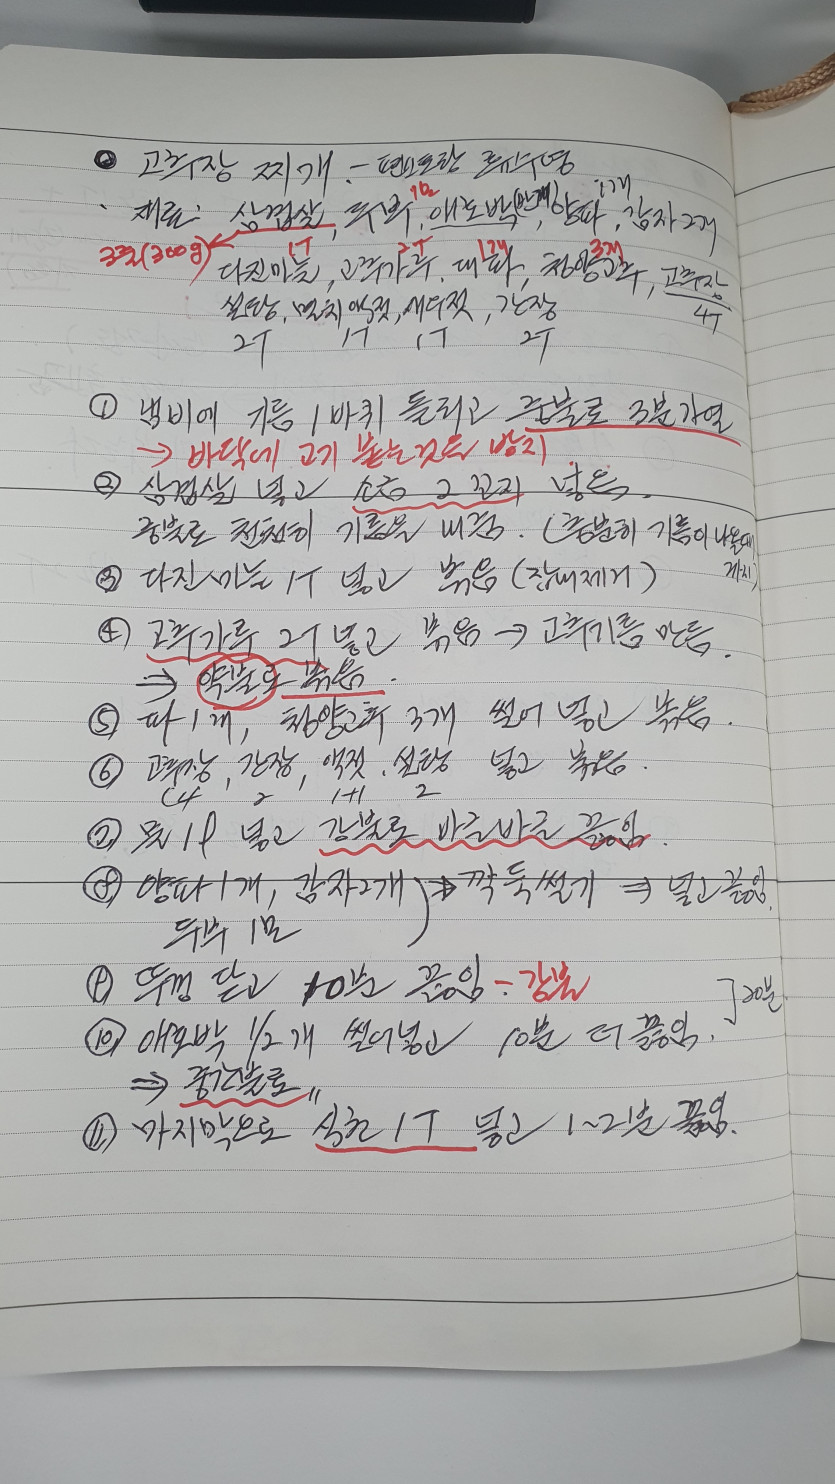 고추장 찌개 :- 편스토랑 류수영
· 재료: 삼겹살, 두부 1모, 애호박(반개), 양파 1개, 감자 2개
3줄(300g)
다진마늘 1T, 고추가루 2T, 대파 1개, 청양고추 3개, 고추장 4T
설탕, 멸치액젓, 새우젓, 간장
2T 1T 1T 2T
① 냄비에 기름 1바퀴 둘리고 중불로 3분가열
→ 바닥에 고기 붙는것을 방지
② 삼겹살 넣고 소금 2꼬집 넣음.
중불로 천천히 기름을 내줌. (충분히 기름이 나올때 까지)
③ 다진마늘 1T 넣고 볶음 (잡내제거)
④ 고추가루 2T 넣고 볶음 → 고추기름 만듬.
⇒ 약불로 볶음.
⑤ 파 1개, 청양고추 3개 썰어 넣고 볶음.
⑥ 고추장, 간장, 액젓, 설탕 넣고 볶음.
4 2 1+1 2
⑦ 물 1l 넣고 강불로 바글바글 끓임.
⑧ 양파 1개, 감자 2개 ⇒ 깍둑썰기 ⇒ 넣고 끓임.
두부 1모
⑨ 뚜껑 닫고 10분 끓임 - 강불
] 20분.
⑩ 애호박 1/2개 썰어넣고 10분 더 끓임.
⇒ 중간불로 〃
⑪ 마지막으로 식초 1T 넣고 1~2분 끓임.